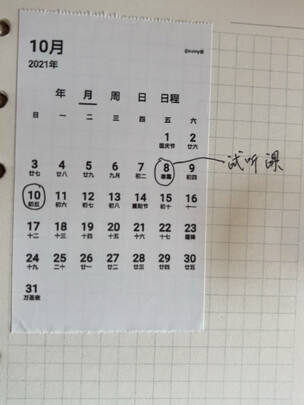 10月
@sunny酱
2021年
年 月 周 日 日程
日 一 二 三 四 五 六
1 2
国庆节 廿六
3 4 5 6 7 8 9
廿七 廿八 廿九 九月 初二 寒露 初四
试听课
10 11 12 13 14 15 16
初五 初六 初七 初八 重阳节 初十 十一
17 18 19 20 21 22 23
十二 十三 十四 十五 十六 十七 霜降
24 25 26 27 28 29 30
十九 二十 廿一 廿二 廿三 廿四 廿五
31
万圣夜